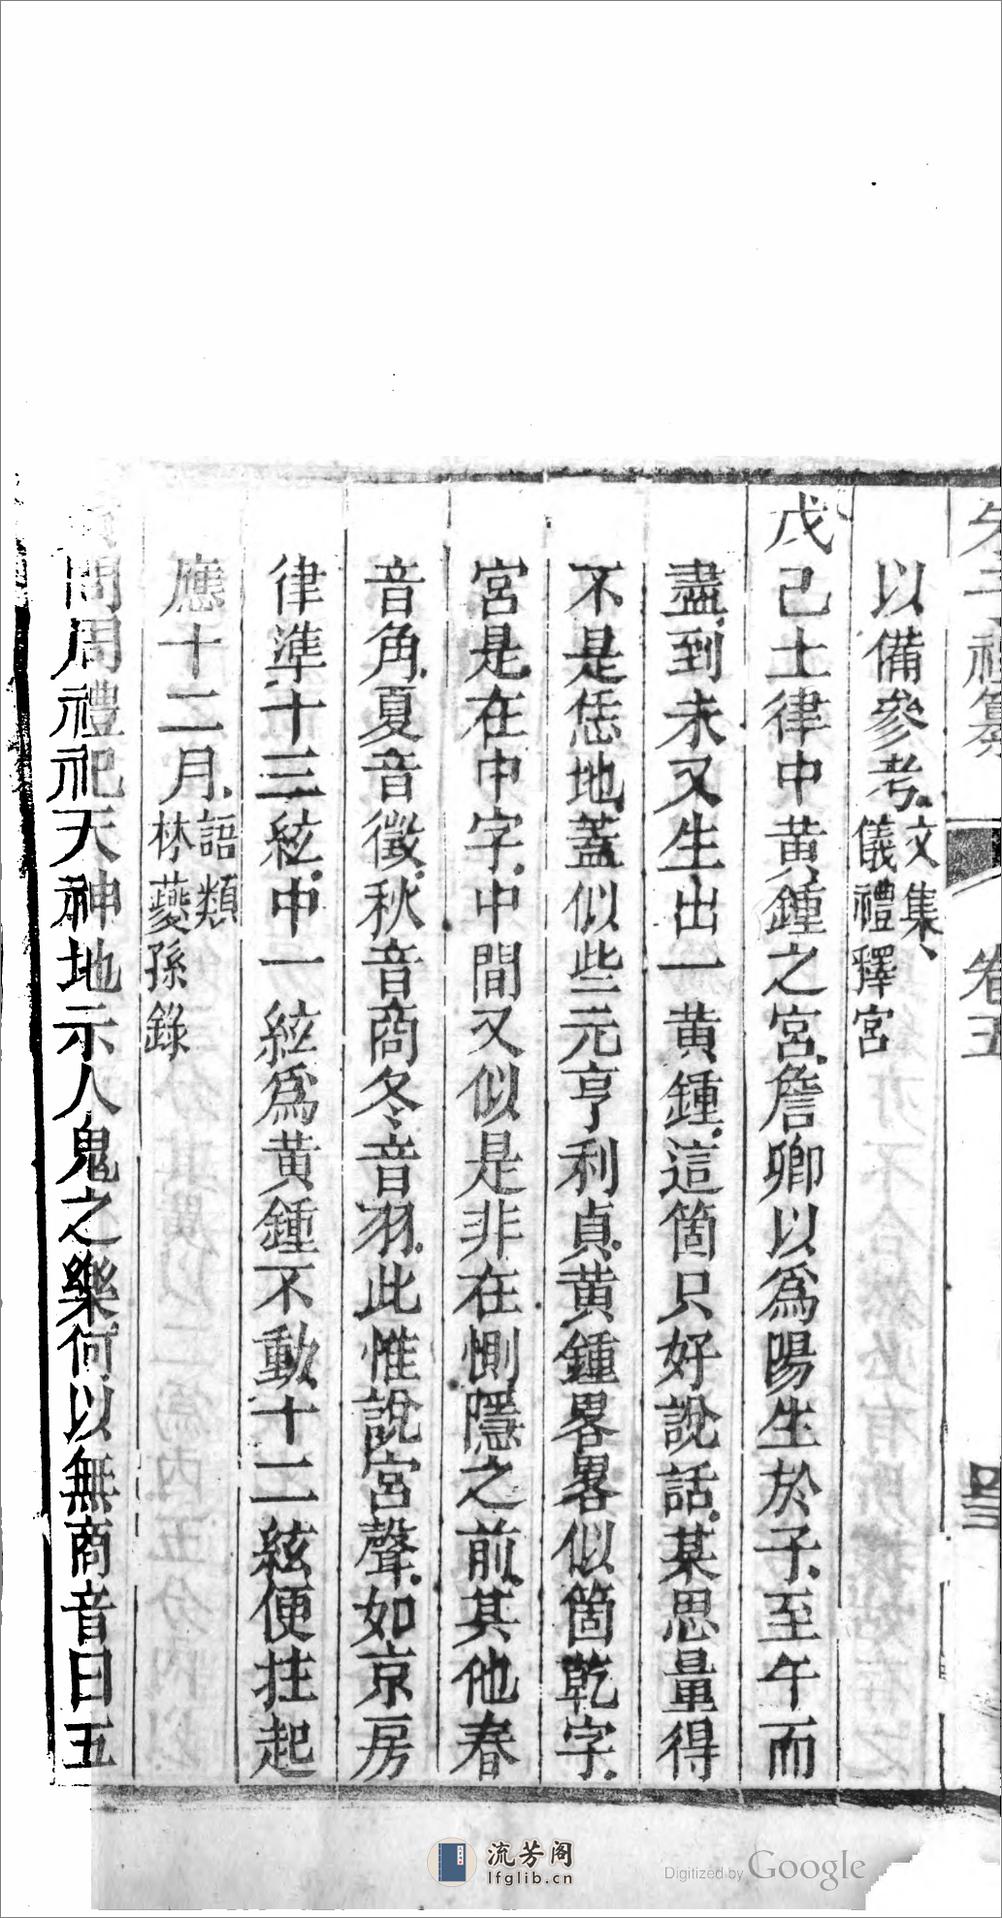 朱子禮纂 卷五 四三
以備參考文集、儀禮釋宮
戊己土律中黃鍾之宮詹卿以爲陽生於子至午而
盡到未又生出一黃鍾這箇只好說話某思量得
不是恁地蓋似些元亨利貞黃鍾畧畧似箇乾字
宮是在中字中間又似是非在惻隱之前其他春
音角夏音徵秋音商冬音羽此惟說宮聲如京房
律準十三絃中一絃爲黃鍾不動十二絃便拄起
應十二月語類林夔孫錄
問周禮祀天神地示人鬼之樂何以無商音曰五
流芳阁
lfglib.cn
Digitized by Google